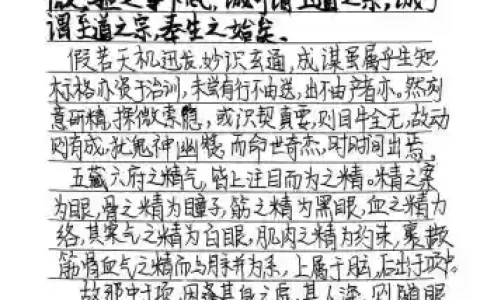 谓至道之宗，奉生之始矣。
假若天机迅发，妙识玄通，成谋虽属乎生知，
标格亦资于治训，未尝有行不由送，出不由产者亦。然刻
意研精，探微索隐，或识契真要，则目牛全无，故动
则有成，犹鬼神幽赞，而命世奇杰，时时间出焉。
五藏六府之精气，皆上注目而为之精。精之窠
为眼，骨之精为瞳子，筋之精为黑眼，血之精为
络，其窠气之精为白眼，肌肉之精为约束，裹撷
筋骨血气之精而与脉并为系，上属于脑，后出于项中。
故邪中于项，因逢其身之虚，其入深，则随眼